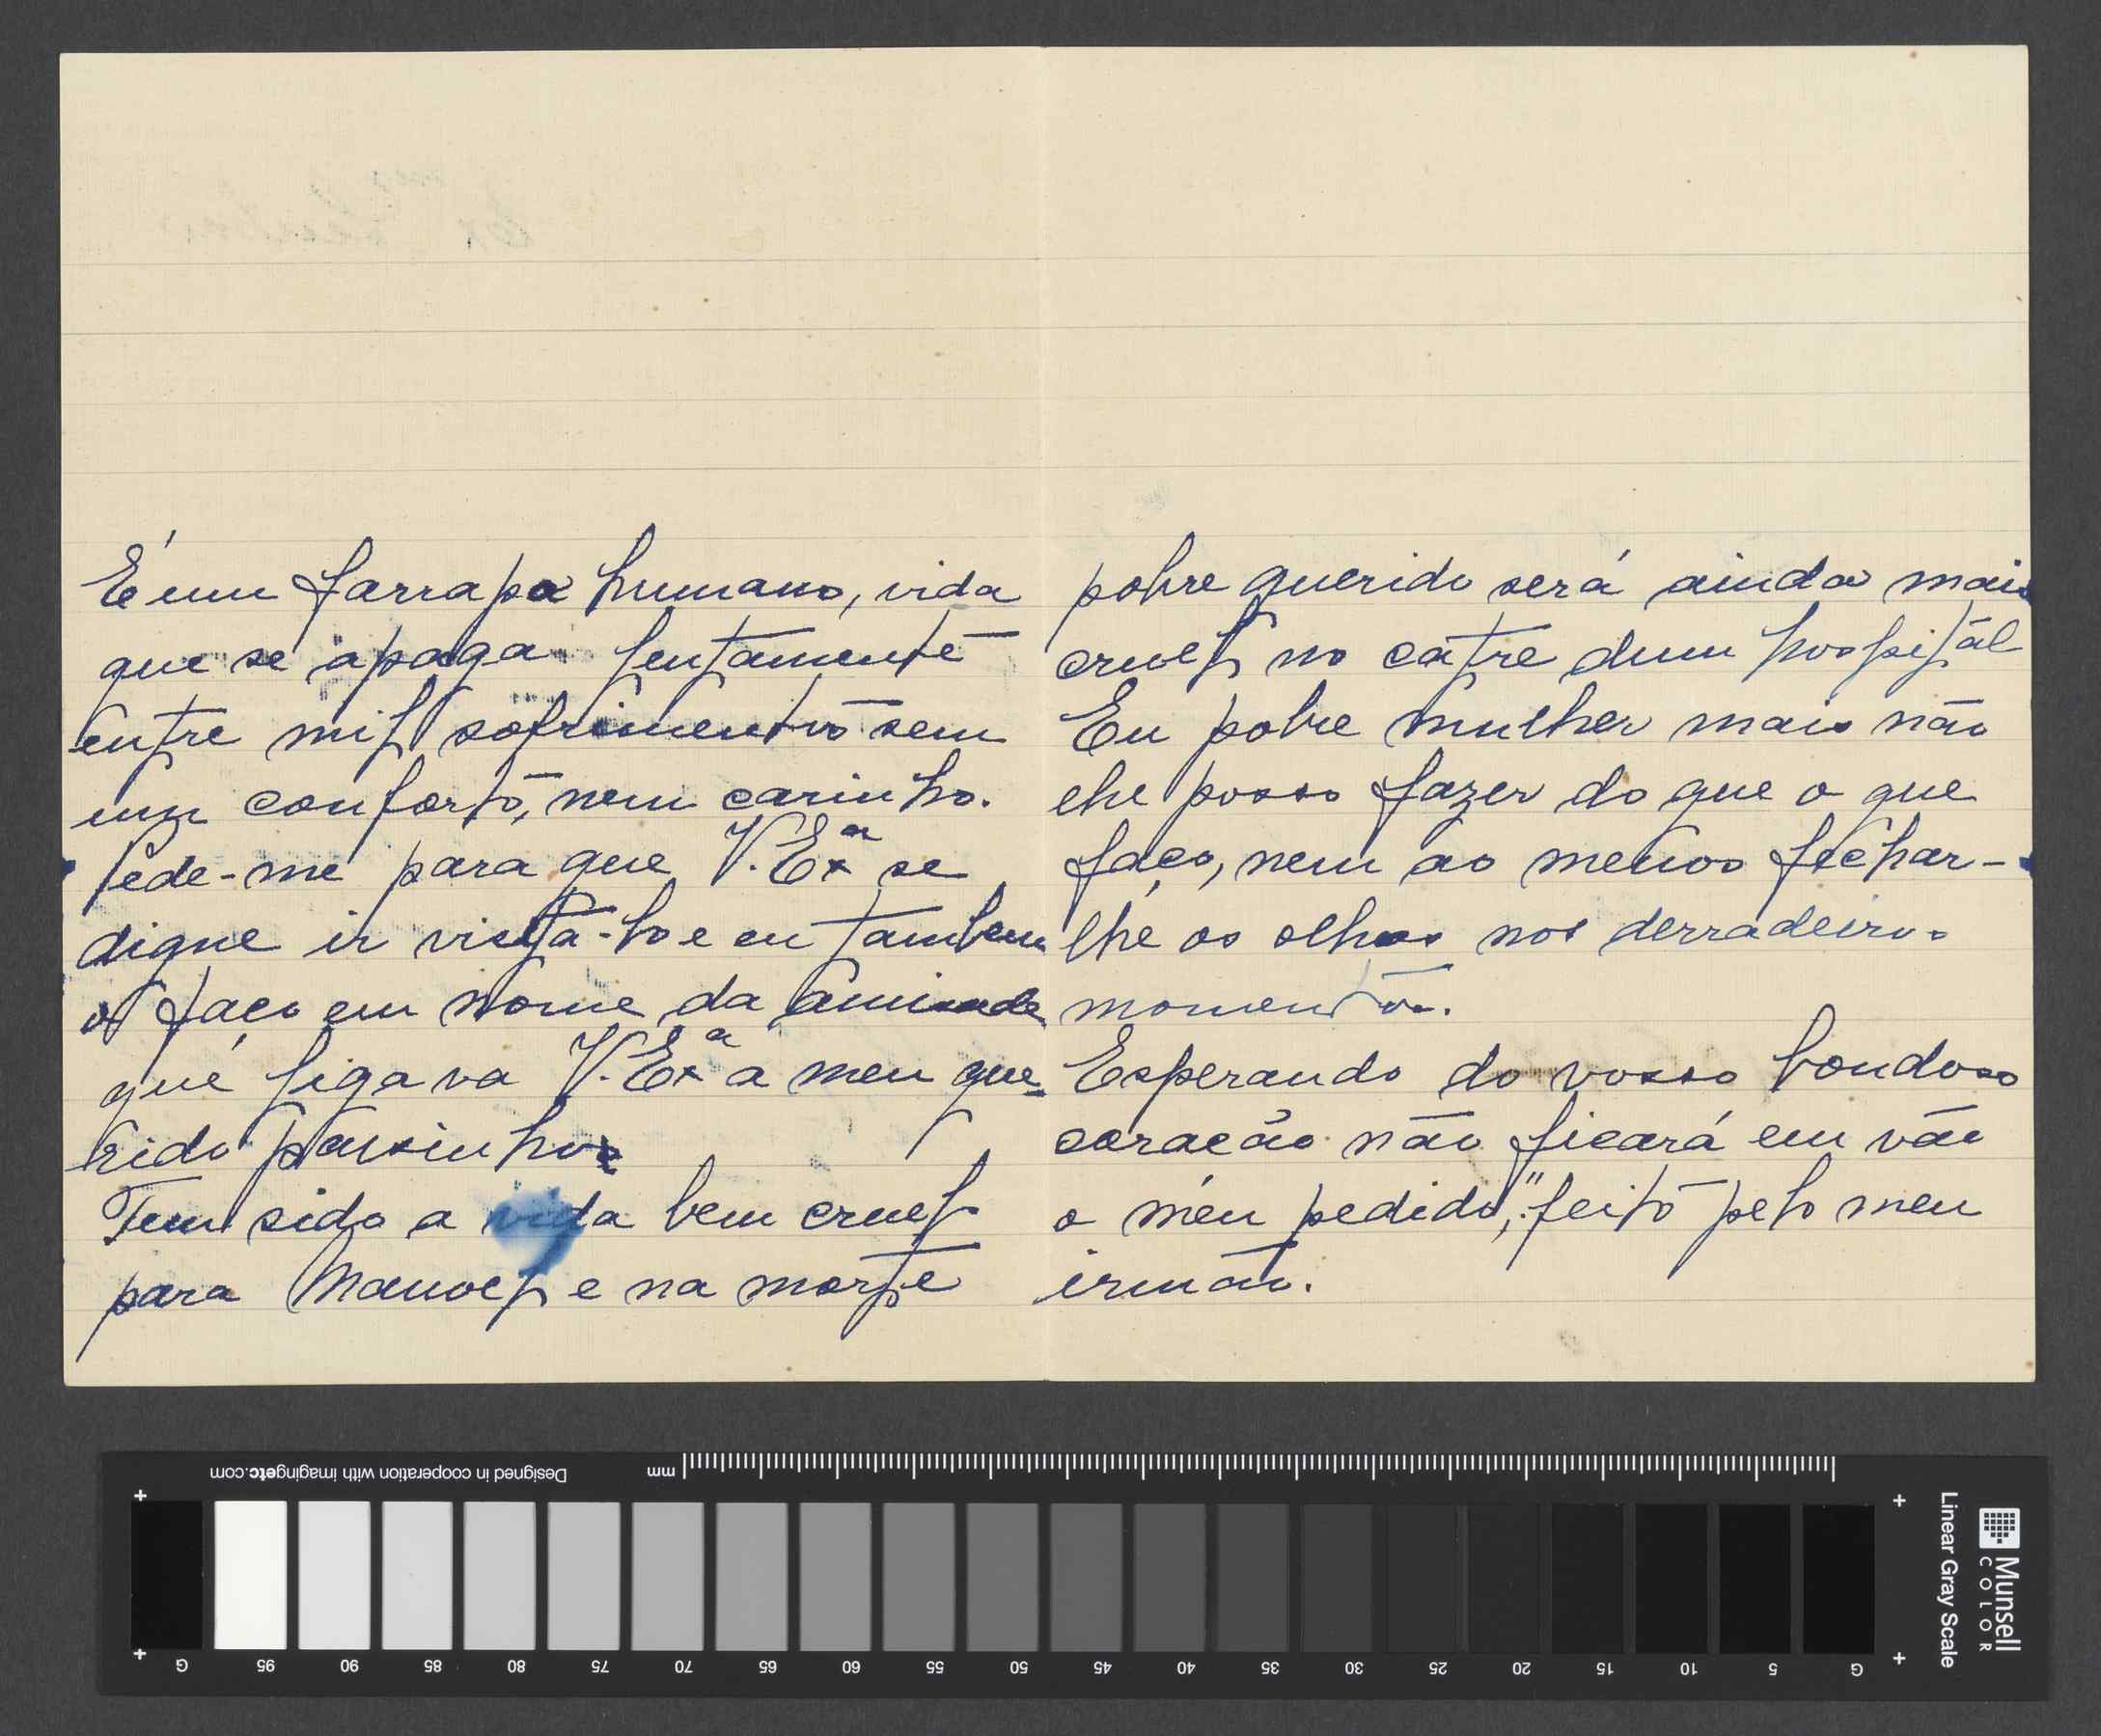 É um farrapo humano, vida
que se apaga lentamente
entre mil sofrimentos sem
um conforto, nem carinho.
Pede-me para que V. Exª se
digne ir visita-lo e eu tambem
o faço em nome da amisade
que ligava V. Exª a meu que-
rido paisinho.
Tem sido a vida bem cruel
para Manoel e na morte
pobre querido será ainda mais
cruel no catre dum hospital
Eu pobre mulher mais não
lhe posso fazer do que o que
faço, nem ao menos fechar-
lhe os olhos nos derradeiros
momentos.
Esperando do vosso bondoso
coração não ficará em vão
o meu pedido, feito pelo meu
irmão.
Designed in cooperation with imagingetc.com
mm
G 95 90 85 80 75 70 65 60 55 50 45 40 35 30 25 20 15 10 5 G
Linear Gray Scale
Munsell
COLOR